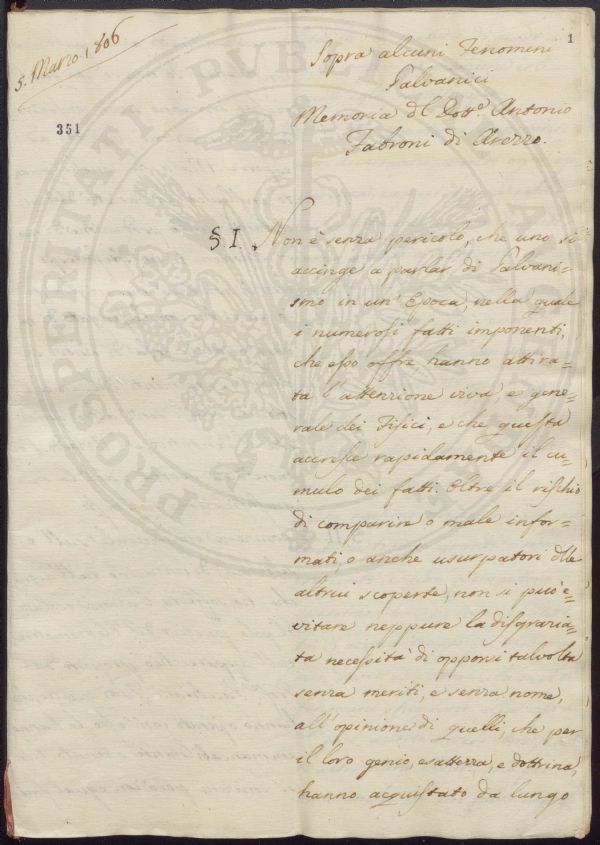 5. Marzo 1806
1
351
Sopra alcuni Fenomeni
Galvanici
Memoria dl Dott.e Antonio
Fabroni di Arezzo.
§. I. Non è senza pericolo, che uno si
accinge a parlar di Galvani=
smo in un' Epoca, nella quale
i numerosi fatti imponenti,
che esso offre hanno attira=
ta l'attenzione viva, e gene=
rale dei Fisici, e che questa
accresce rapidamente il cu=
mulo dei fatti. Oltre il rischio
di comparire o male infor=
mati, o anche usurpatori dlle
altrui scoperte, non si può e=
vitare neppure la disgrazia=
ta necessità di opporsi talvolta
senza meriti, e senza nome,
all'opinione di quelli, che per
il loro genio, esattezza, e dottrina,
hanno acquistato da lungo
PROSPERITATI PUBLICAE